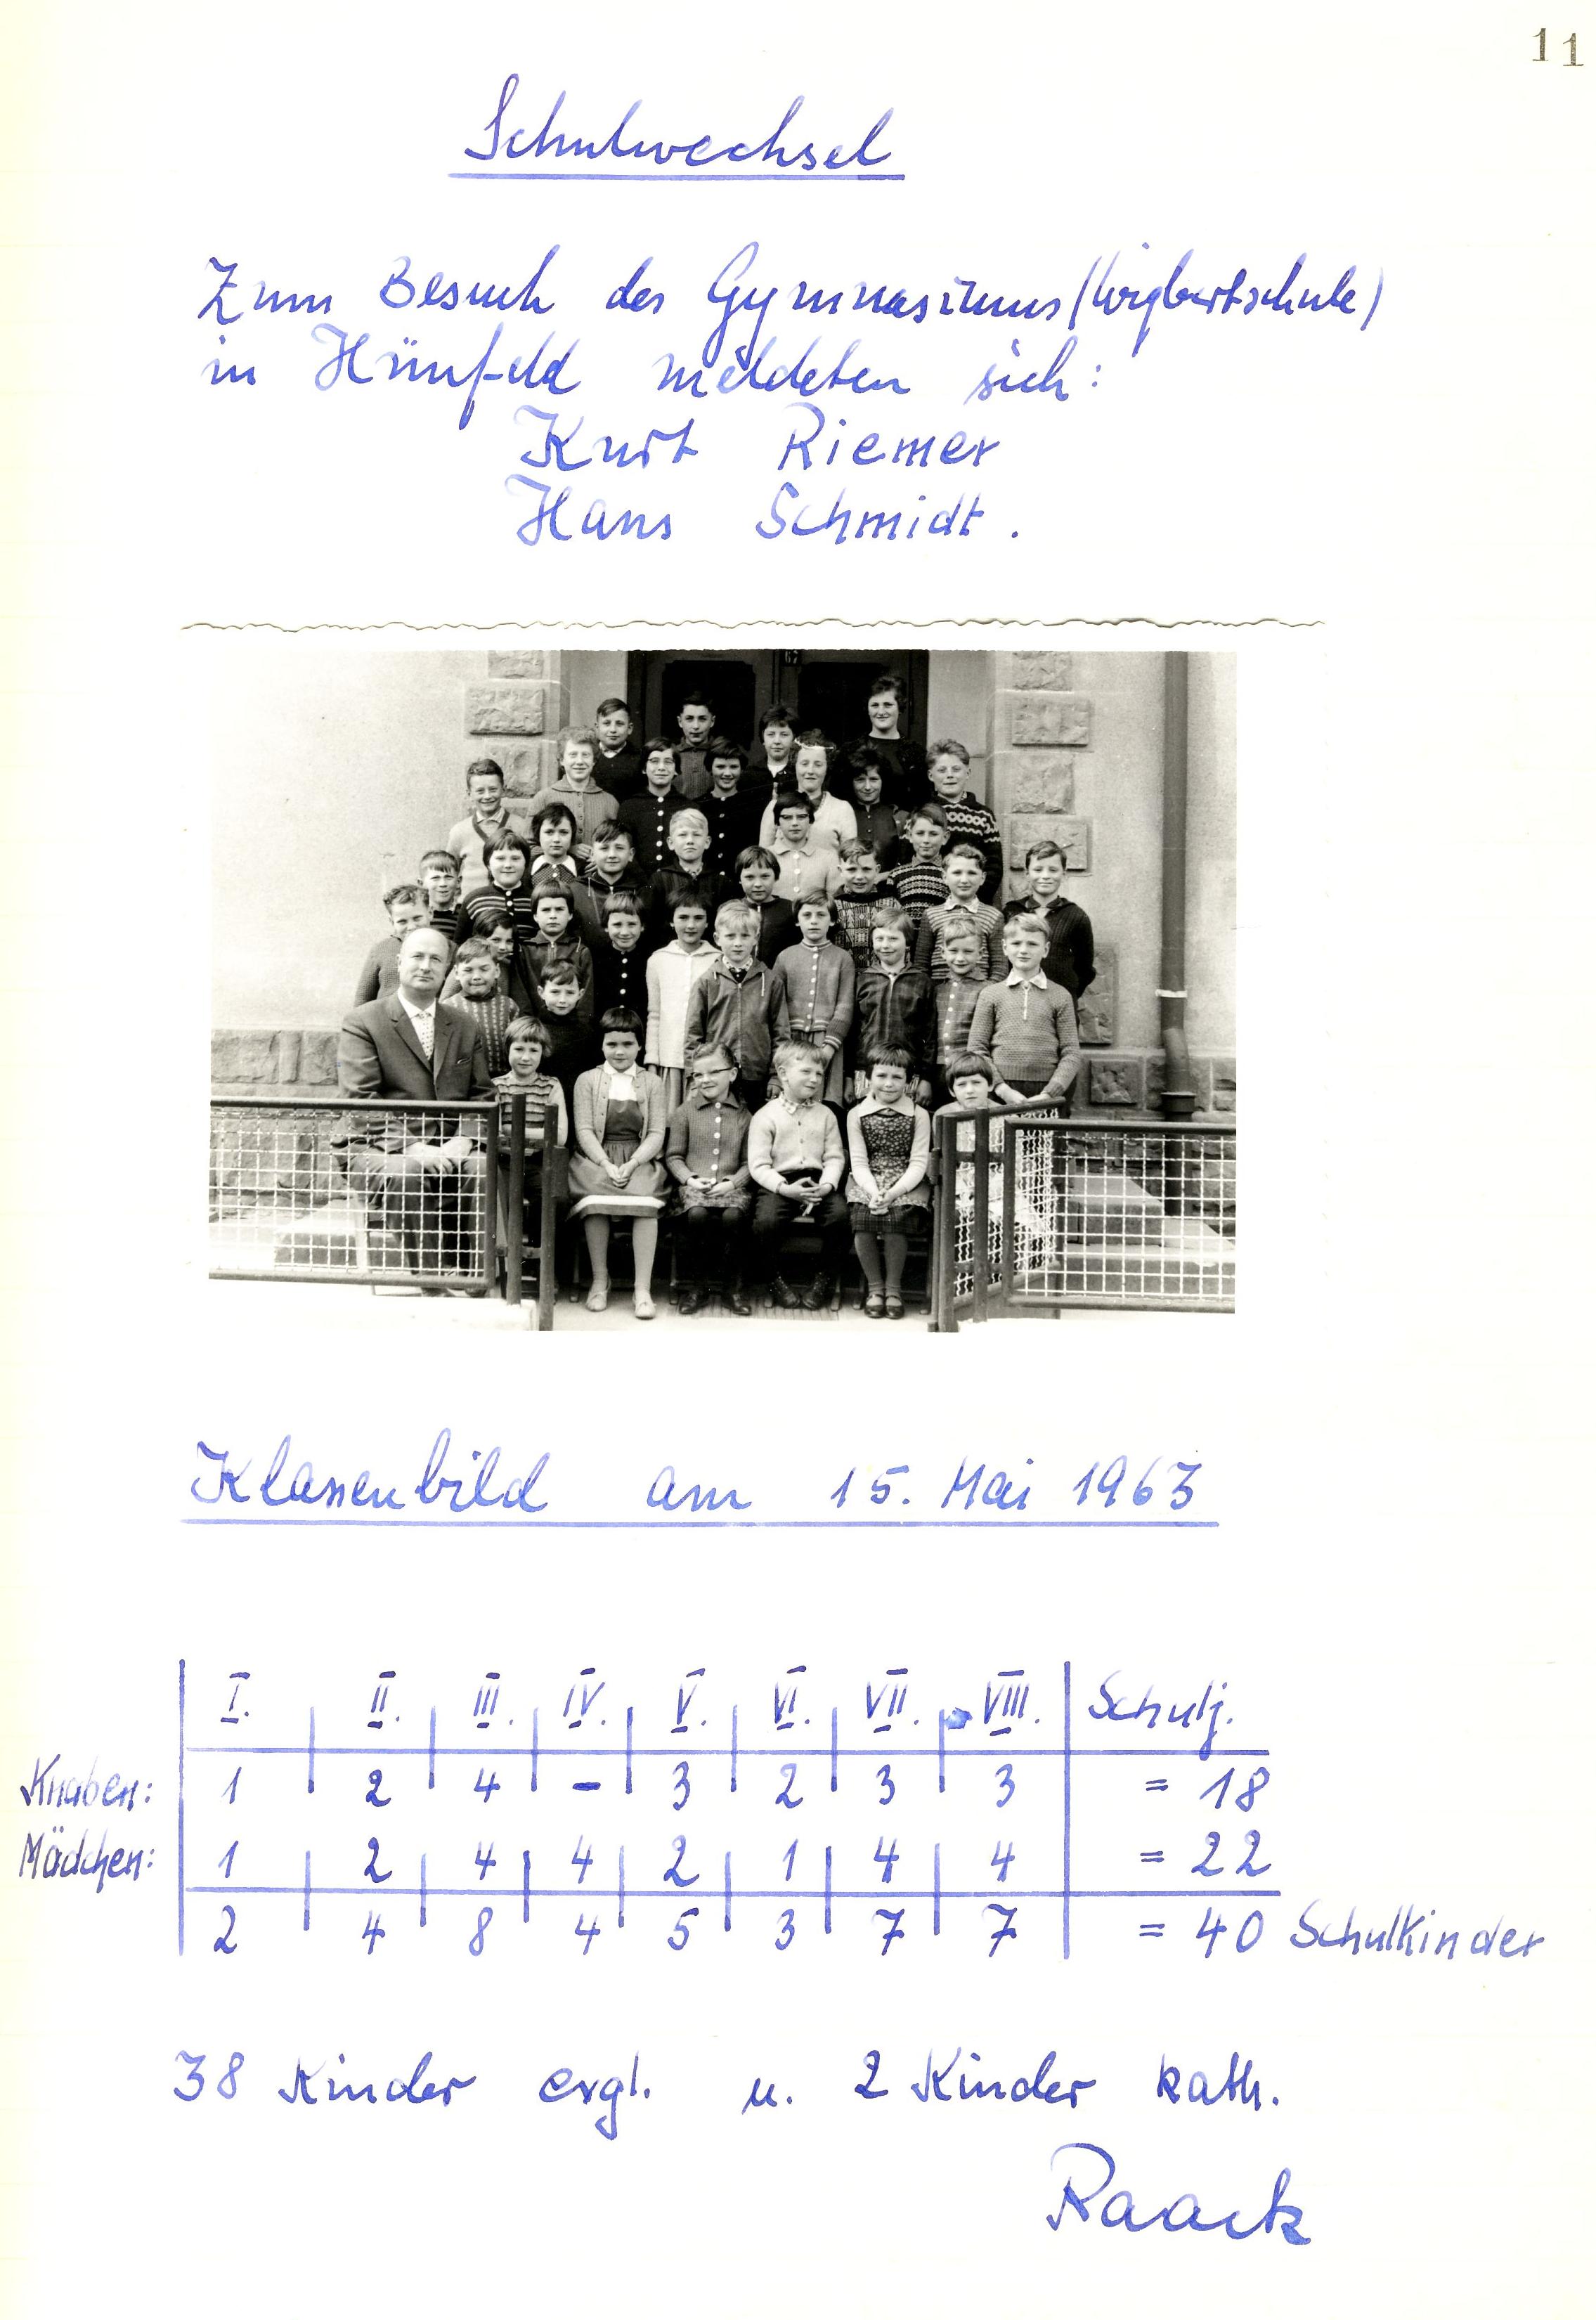 11
Schulwechsel
Zum Besuch des Gymnasiums (Wigbertschule)
in Hünfeld meldeten sich:
Kurt Riemer
Hans Schmidt.
67
Klassenbild am 15. Mai 1963
I. II. III. IV. V. VI. VII. VIII. Schulj.
Knaben: 1 2 4 - 3 2 3 3 = 18
Mädchen: 1 2 4 4 2 1 4 4 = 22
2 4 8 4 5 3 7 7 = 40 Schulkinder
38 Kinder evgl. u. 2 Kinder kath.
Raack